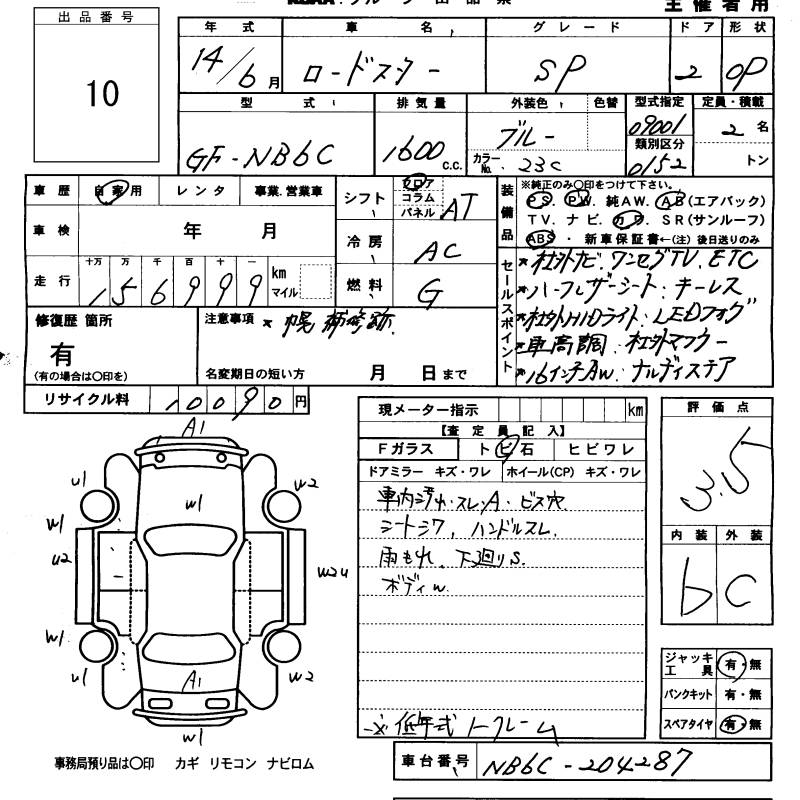 出品番号
10
主催者用
年式 車名 グレード ドア 形状
14/6月 ロードスター SP 2 OP
型式 排気量 外装色 色替 型式指定 定員・積載
GF-NB6C 1600 C.C. ブルー 09001 2名
カラーNo. 23C 類別区分 0152 トン
車歴 自家用 レンタ 事業.営業車
シフト フロア コラム パネル AT
装備品 ※純正のみ○印をつけて下さい。
PS. PW. 純AW. AB(エアバック)
TV. ナビ. カワ. SR(サンルーフ)
ABS ・ 新車保証書←(注)後日送りのみ
車検 年 月
冷房 AC
走行 十万 万 千 百 十 一
156999 km マイル
燃料 G
セールスポイント
*社外ナビ.ワンセグTV.ETC
*ハーフレザーシート.キーレス
*社外HIDライト.LEDフォグ
*車高調 社外マフラー
*16インチAw.ナルディステア
修復歴 箇所
有
(有の場合は○印を)
注意事項 *幌補修跡.
名変期日の短い方 月 日まで
リサイクル料 10090円
現メーター指示 km
【査定員記入】
Fガラス トビ石 ヒビワレ
ドアミラー キズ・ワレ ホイール(CP) キズ・ワレ
車内汚れ.スレ.A.ビス穴.
シートシワ,ハンドルスレ.
雨もれ.下廻りS.
ボディw.
※低年式 トクレーム
評価点
3.5
内装 外装
b C
ジャッキ工具 有・無
パンクキット 有・無
スペアタイヤ 有・無
A1
u1 w1 w2
w1
u2 w2u
w1
u1 A1 w2
w1
事務局預り品は○印 カギ リモコン ナビロム
車台番号 NB6C-204287